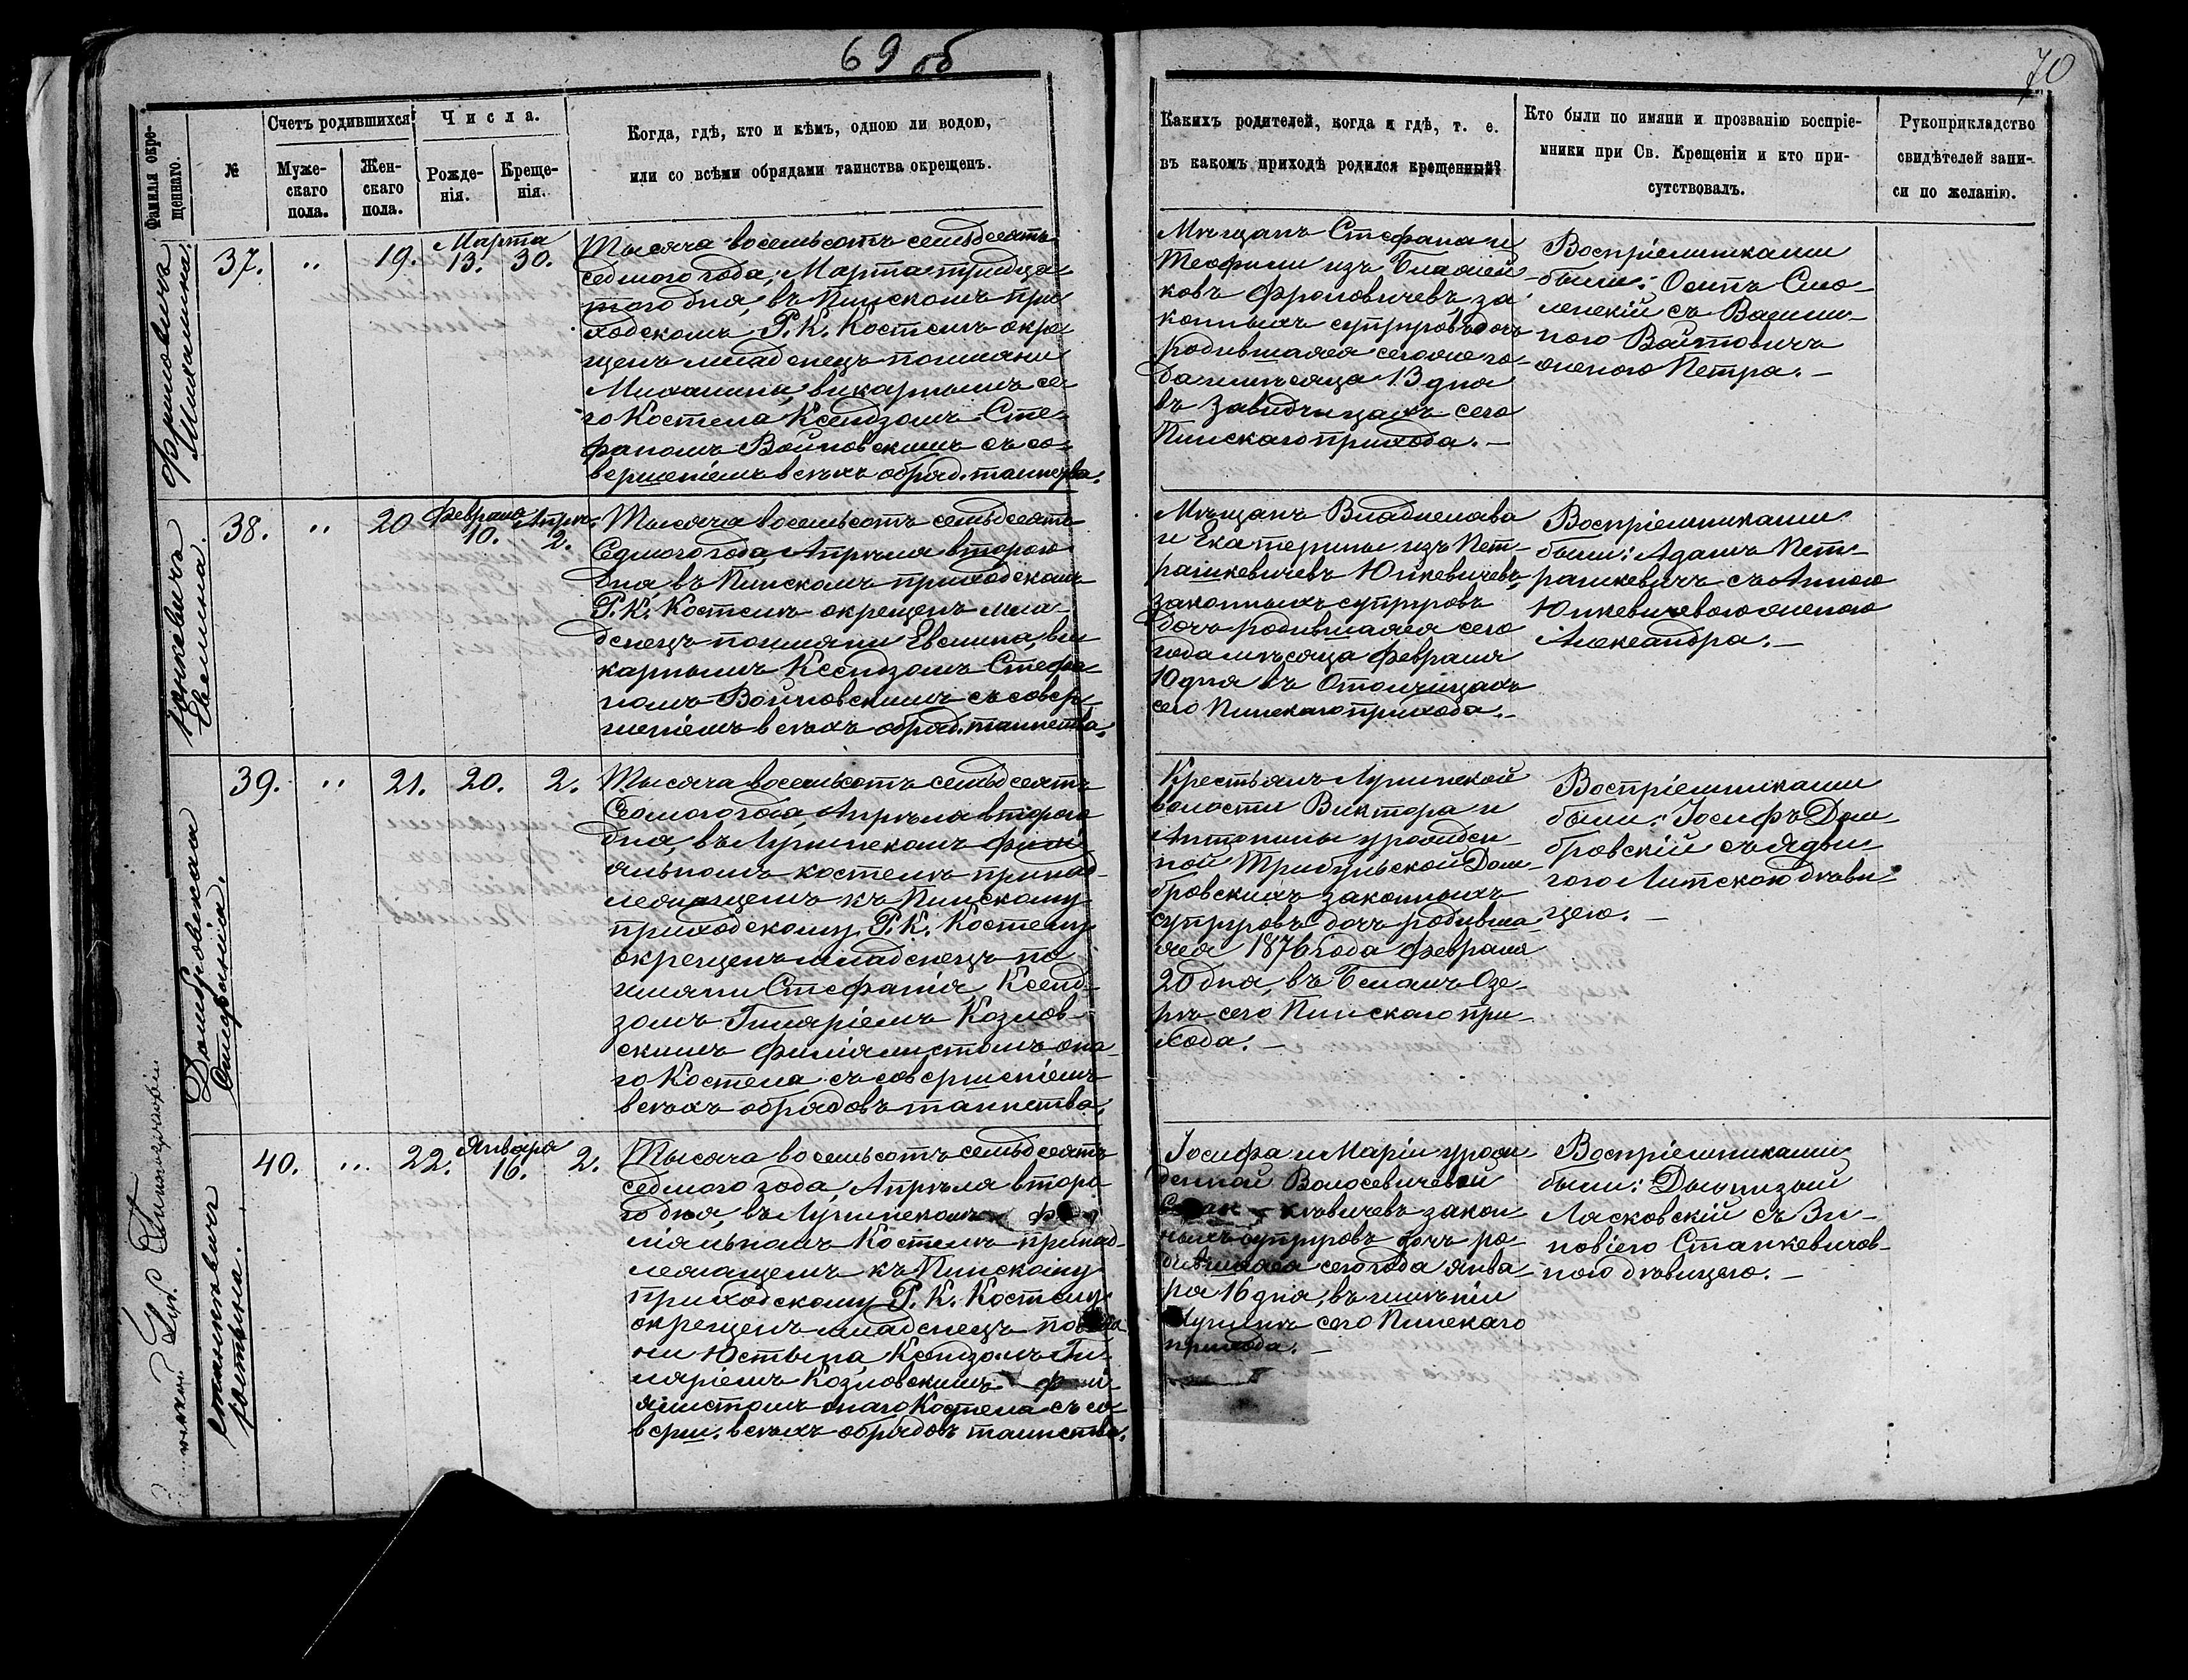 69 об
70
Фамилія окре-
щеннаго.
№
Счетъ родившихся
Муже-
скаго
пола.
Жен-
скаго
пола.
Числа.
Рожде-
нія.
Креще-
нія.
Когда, гдѣ, кто и кѣмъ, одною ли водою,
или со всѣми обрядами таинства окрещенъ.
Какихъ родителей, когда и гдѣ, т. е.
въ какомъ приходѣ родился крещенный?
Кто были по имяни и прозванію воспріе-
мники при Св. Крещеніи и кто при-
сутствовалъ.
Рукоприкладство
свидѣтелей запи-
си по желанію.
Фроловичъ
Михалина.
37. " 19. Марта
13. 30.
Тысяча восемьсотъ семьдесятъ
седмого года, Марта тридца-
того дня, въ Пинскомъ при-
ходскомъ Р. К. Костелѣ окре-
щенъ младенецъ по имяни
Михалина, викарнымъ се-
го Костела Ксендзомъ Сте-
фаномъ Войновскимъ съ со-
вершеніемъ всѣхъ обряд. таинства.
Мѣщанъ Стефана и
Теофили изъ
Фроловичевъ, за
конныхъ супруговъ дочь
родившаяся сего же го-
да и мѣсяца 13 дня
въ Завидчицахъ сего
Пинскаго прихода. —
Воспріемниками
были: Осипъ Смо-
ленскій съ
Войтовичъ
женою Петра. —
Юнкевичъ
Евелина.
38. " 20 Февраля
10. Апрѣ.
2.
Тысяча восемьсотъ семьдесятъ
Седмого года, Апрѣля второго
дня, въ Пинскомъ приходскомъ
Р. К. Костелѣ окрещенъ мла-
денецъ по имяни Евелина, ви-
карнымъ Ксендзомъ Стефа-
номъ Войновскимъ съ совер-
шеніемъ всѣхъ обряд. таинства.
Мѣщанъ Владислава
и Екатерины изъ Пет-
рашкевичевъ Юнкевичевъ,
законныхъ супруговъ
дочь родившаяся сего
года мѣсяца Февраля
10 дня въ Отолчицахъ
сего Пинскаго прихода. —
Воспріемниками
были: Адамъ Пет-
рашкевичъ съ Анною
Юнкевичевою женою
Александра. —
Домбровская
Стефанія.
39. " 21. 20. 2.
Тысяча восемьсотъ семьдесятъ
Седмого года, Апрѣля второго
дня, въ Лунинскомъ фили-
яльномъ костелѣ принад-
лежащемъ къ Пинскому
приходскому Р. К. Костелу
окрещенъ младенецъ по
имяни Стефанія, Ксенд-
зомъ Гиляріемъ Козлов-
скимъ филіялистомъ она-
го Костела съ совершеніемъ
всѣхъ обрядовъ таинства.
Крестьянъ Лунинской
волости Виктора и
Антонины урожден-
ной Домб-
бровскихъ законныхъ
супруговъ дочь родивша-
яся 1876 года Февраля
20 дня, въ Беломъ Озе-
рѣ сего Пинскаго при-
хода. —
Воспріемниками
были: Іосифъ Дом-
бровскій съ Ядви-
гою дѣви-
цею. —
Станкевичъ
Юстына.
40. " 22. Января
16. 2.
Тысяча восемьсотъ семьдесятъ
седмого года, Апрѣля второ-
го дня, въ Лунинскомъ фи-
ліяльномъ Костелѣ принад-
лежащемъ къ Пинскому
приходскому Р. К. Костелу
окрещенъ младенецъ по имя-
ни Юстына, Ксендзомъ Ги-
ляріемъ Козловскимъ фили-
ялистомъ онаго Костела съ со-
верш. всѣхъ обрядовъ таинства.
Іосифа и Маріи урож-
денной Волосевичевой
законныхъ
супруговъ дочь ро-
дившаяся сего года Янва-
ря 16 дня, въ имѣніи
Лунинѣ сего Пинскаго
прихода. —
Воспріемниками
были: Діонизій
Лясковскій съ Зи-
новіею Станкевичов-
ною дѣвицею. —